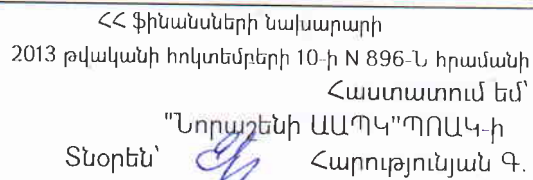 ՀՀ ֆինանսների նախարարի
2013 թվականի հոկտեմբերի 10-ի N 896-Ն հրամանի
Հաստատում եմ՝
"Նորաշենի ԱԱՊԿ"ՊՈԱԿ-ի
Տնօրեն՝ Հարությունյան Գ.